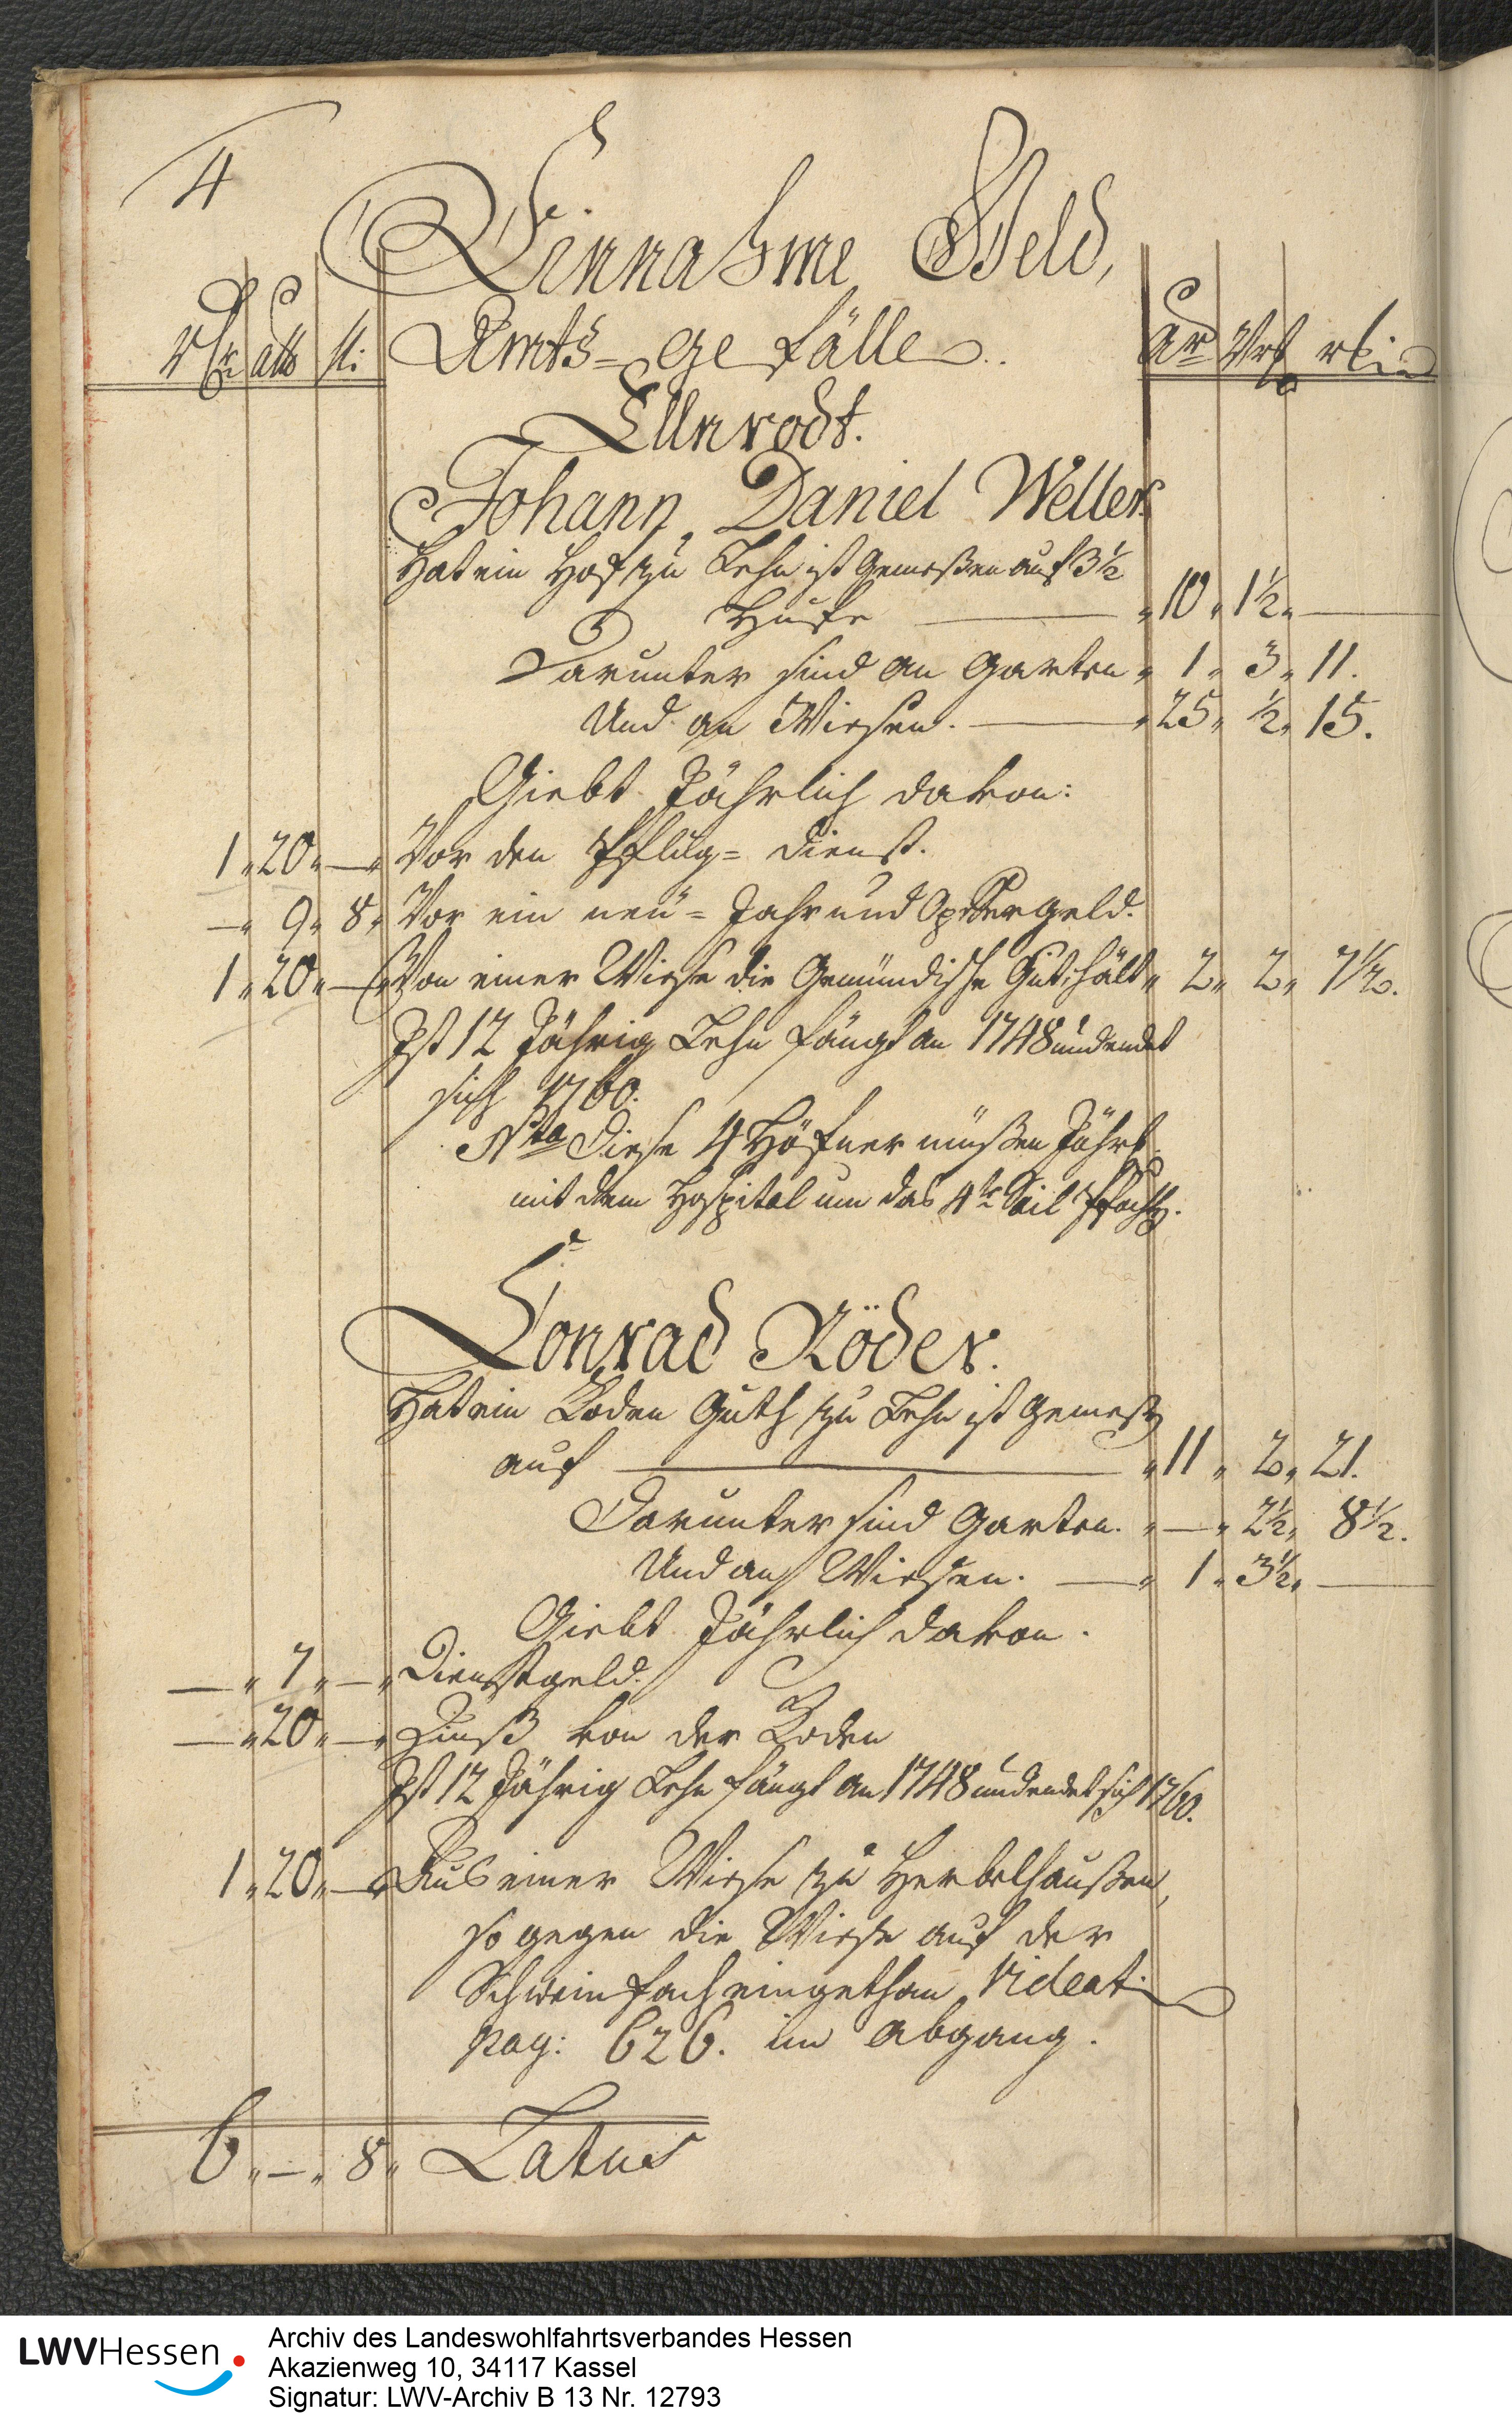 4
Einnahme Geld,
Rthr alb hl: Amts-gefälle. Ar Vrt rth
Ellnrodt.
Johann Daniel Weller
Hat ein Hof zu Lehn ist Gemeßen auf 3½
Hufe — 10 „ 1½ „ —
Darunter sind an Garten „ 1 „ 3 „ 11.
Und an Wiesen. — „ 25 „ ½ „ 15.
Giebt Jährlich davon:
1 „ 20 „ — „ Vor den Pflug-dienst.
— „ 9 „ 8 „ Vor ein neu-Jahr und Opffergeld.
1 „ 20 „ — „ Von einer Wiese die Gemündische Gut, hält „ 2 „ 2 „ 7½.
Ist 12 Jährig Lehn fängt an 1748 und endet
sich 1760.
Nta Diese 4 Höfner müßen Jährl.
mit dem Hospital um das 4te Seil
Conrad Röder.
Hat ein Koden Guth zu Lehn ist Gemeß
auf — „ 11 „ 2 „ 21.
Darunter sind Garten. „ — „ 2½ „ 8½.
Und an Wiesen. — „ 1 „ 3½ „ —
Giebt Jährlich davon.
— „ 7 „ — „ Dienstgeld.
— „ 20 „ — „ Zinß von der Koden
Ist 12 Jährig Lehn fängt an 1748 und endet sich 1760.
1 „ 20 „ — „ Aus einer Wiese zu Herbelhaußen,
so gegen die Wiese auf der
Schweinfach eingethan, Videat:
pag: 626. im Abgang.
6 „ — „ 8 „ Latus
LWVHessen
Archiv des Landeswohlfahrtsverbandes Hessen
Akazienweg 10, 34117 Kassel
Signatur: LWV-Archiv B 13 Nr. 12793